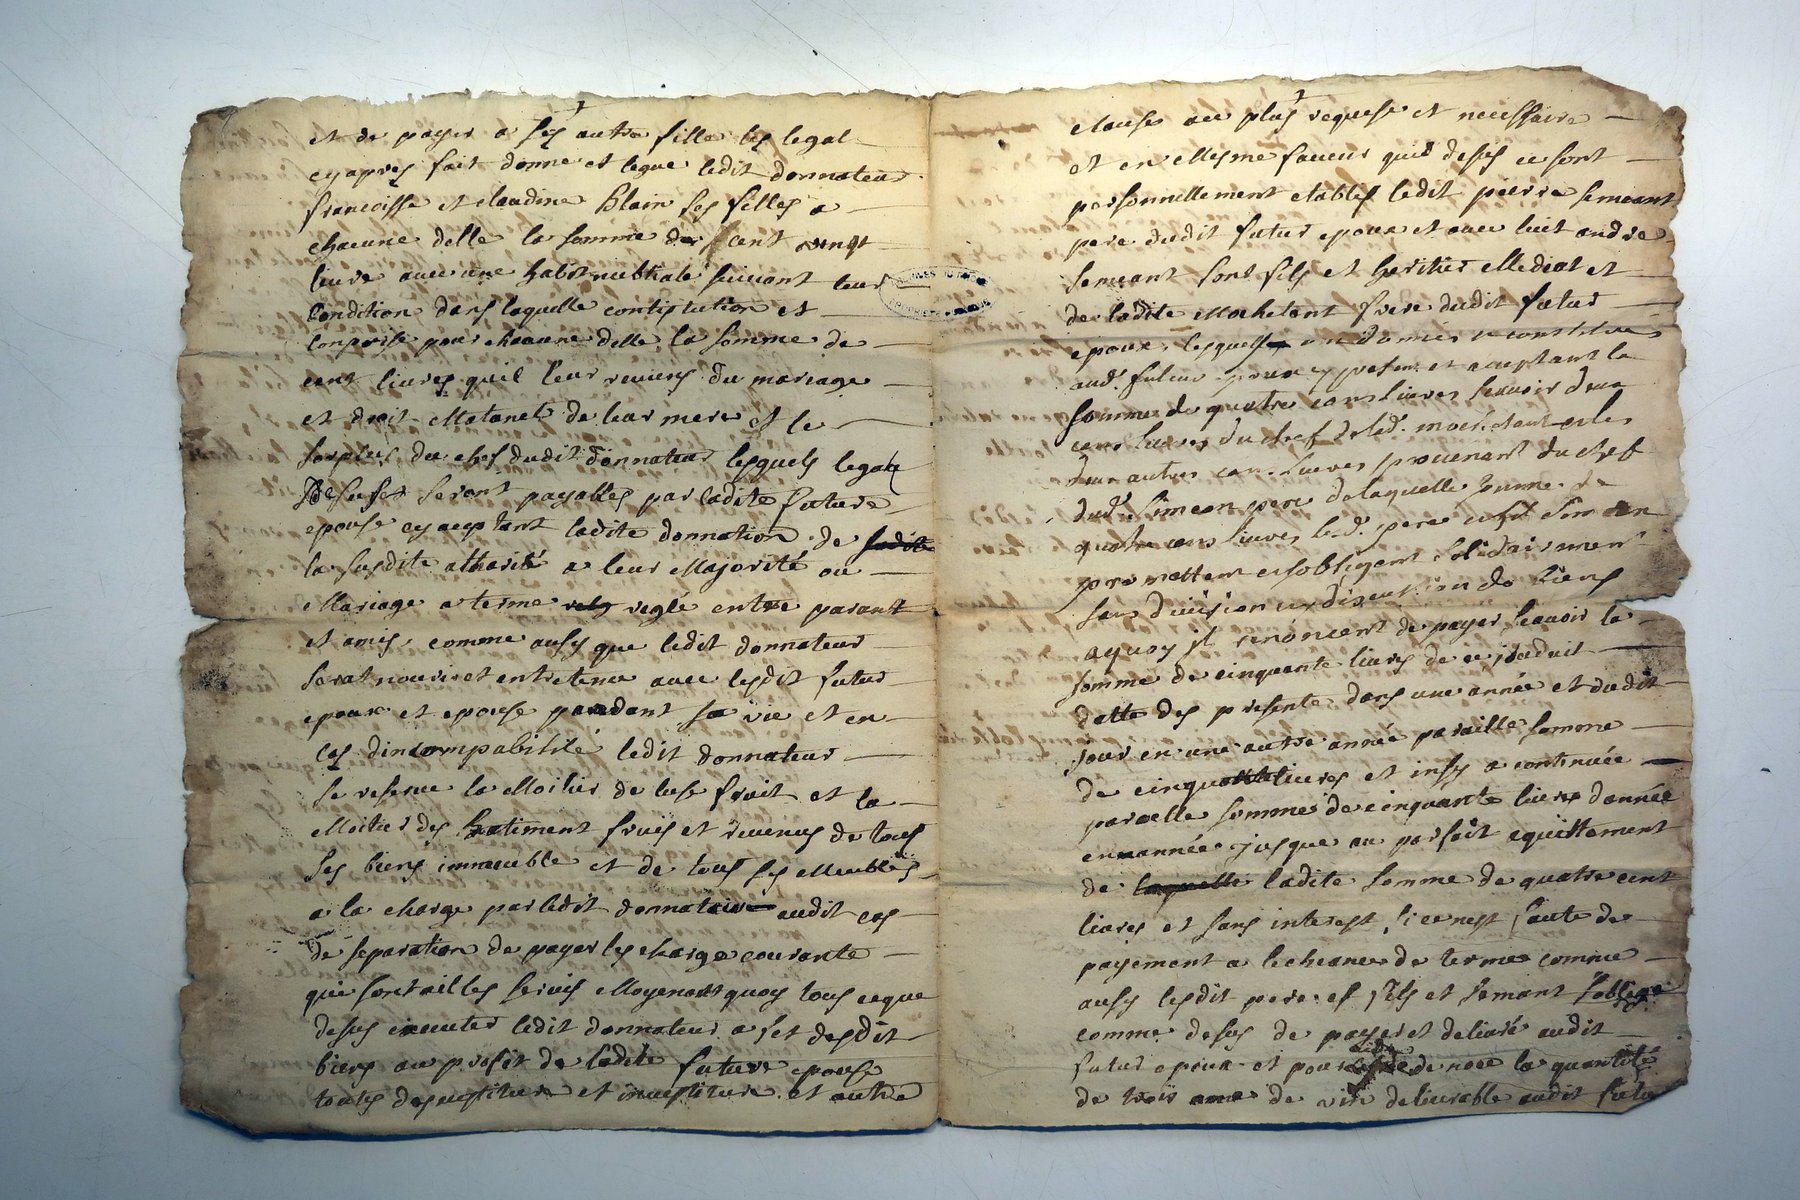 et de payer a ses autre fille les legat
cy apres fait donne et legue ledit donnateur
francoisse et claudine blain ses filles a
chacune delle la somme de cent vingt
livre avec une habit nubtiale suivant leur
Condition dans laquelle contistution est
Comprisse pour chacune delle la somme de
cent livres quil leur reviens du mariage
et droit Matanel de leur mere et le
surplus du chef dudit donnateur lesquels legat
seront payables par ladite future
epouse cy aceptant ladite donnation de ladite
la susdite athorité a leur Majorité ou
Mariage a terme reglé entre parant
et amis, comme ausy que ledit donnateur
serat nourir et entretenu avec lesdit futur
epoux et epouse pandant sa vie et en
cas dincompabilité ledit donnateur
se reserve la Moitier de lusefruit et la
Moitier des batiment fruis et revenus de tous
ses biens immeuble et de tous ses Meubles
a la charge par ledit donnataire audit cas
de separation de payer les charge courante
qui sont ailles servis Moyenant quoy tous ceque
desus executer ledit donnateur a set desdit
biens au profit de ladite future epouse
toutes desvestiture et investiture et autre
clauses au plus requise et necessaire
et en Mesme faveur que desus ce sont
personnellement etablis ledit pierre semeant
pere dudit futur epoux et avec luit andre
semeant sont fils et heritier Mediat et
de ladite Mochetant frere dudit futur
epoux, lesquelle on donner constitué
aud. futur epoux cy present et aceptant la
somme de quatre cens livres scavoir deux
cens livres du chef de lad. mochetant et les
deux autres cens livres provenant du chef
dud. simean pere de laquelle somme de
quatre cens livres led. pere et fil
promettent et sobligent solidairement
sans division ny discution de biens
aquoy il renoncent de payer scavoir la
somme de cinquante livres de ce jourduit
datte des presente dans une année et dudit
jour en une autre année paraille somme
de cinquante livres et insy a continuée
paraelle somme de cinquante livres donnée
en année jusque au parfait aquittement
de laquelle ladite somme de quatre cent
livres et sans interest, si ce nest faute de
payement a lecheance de termes comme
ausy lesdit pere et fils et semant soblige
comme desus de payer et delivré audit
futur epoux et pour de noce la quantité
de trois ane de vin delivrable audit futu